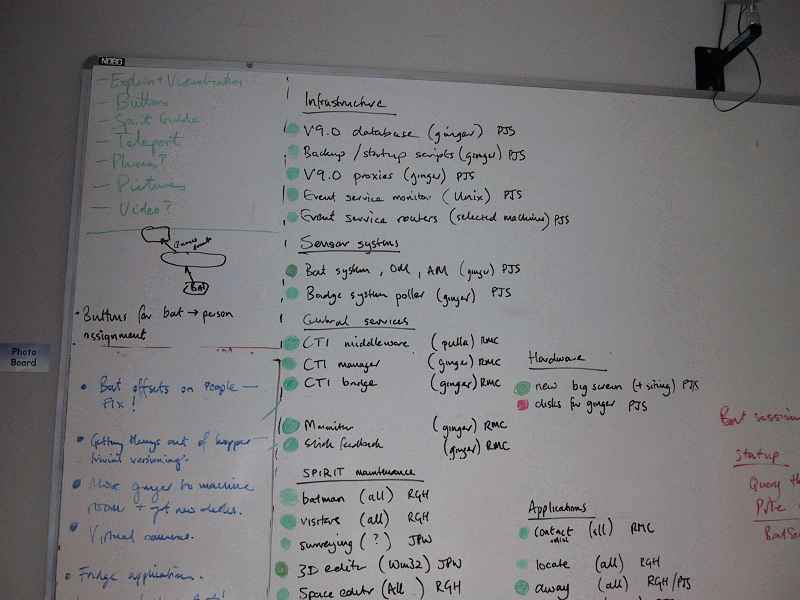 NOBO
- Explain + Visualisation
- Buttons
- Spirit Guide
- Teleport
- Phones?
- Pictures
- Video?
BAt
• Buttons for bat → person
assignment
• Bat offsets on people —
Fix!
• Getting things out of hopper
trivial versioning?
• Move ginger to machine
room + get new disks.
• Virtual cameras.
• Fridge application.
Photo
Board
Infrastructure
V9.0 database (ginger) PJS
Backup / startup scripts (ginger) PJS
V9.0 proxies (ginger) PJS
Event service monitor (Unix) PJS
Event service routers (selected machine) PJS
Sensor systems
Bat system, OM, AM (ginger) PJS
Badge system poller (ginger) PJS
General services
CTI middleware (pulla) RMC
CTI manager (ginger) RMC
CTI bridge (ginger) RMC
(ginger) RMC
feedback (ginger) RMC
SPIRIT maintenance
batman (all) RGH
visitors (all) RGH
surveying (?) JPW
3D editor (Win32) JPW
Space editor (All) RGH
Hardware
new big screen (+ siting) PJS
disks for ginger PJS
Applications
contact (all) RMC
locate (all) RGH
away (all) RGH/PJS
Bat
Startup
Query